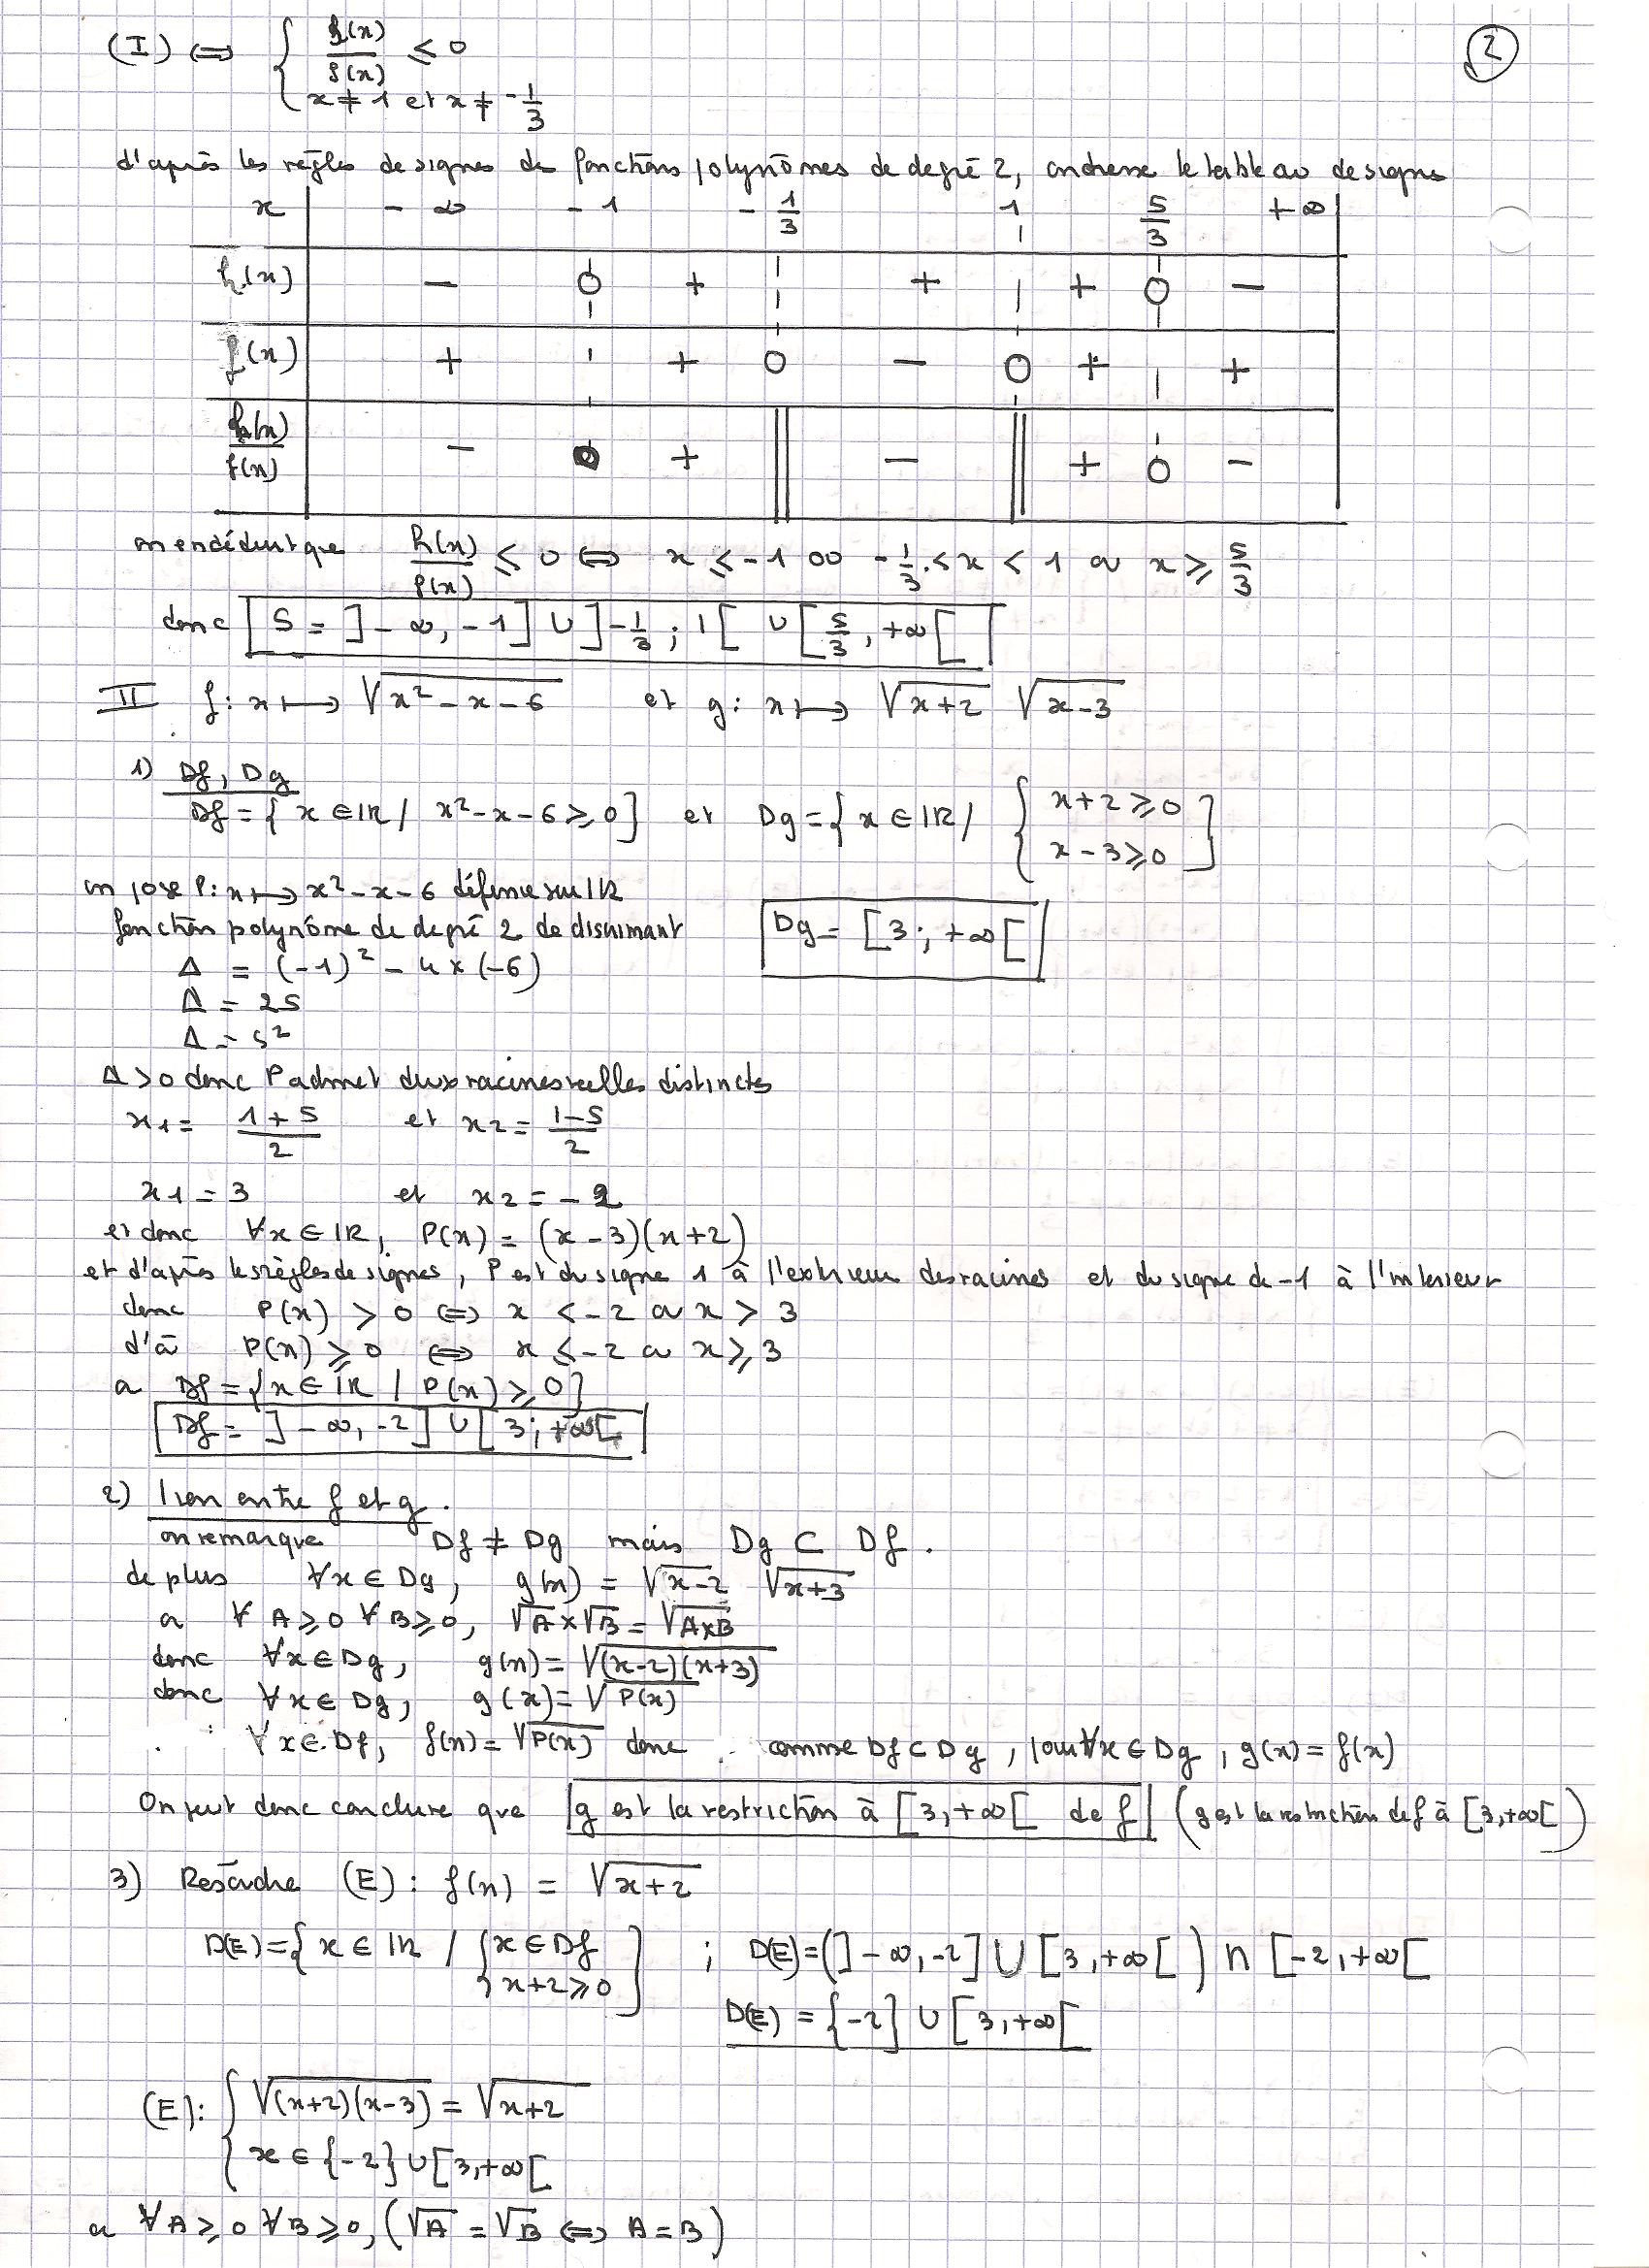 (I) ⟺ { h(x)/f(x) ≤ 0
x ≠ 1 et x ≠ -1/3
2
d'après les règles de signes de fonctions polynômes de degré 2, on dresse le tableau de signes
x | -∞ -1 -1/3 1 5/3 +∞
h(x) | - 0 + | + | + 0 -
f(x) | + | + 0 - 0 + | +
h(x)/f(x) | - 0 + || - || + 0 -
on en déduit que h(x)/f(x) ≤ 0 ⟺ x ≤ -1 ou -1/3 < x < 1 ou x ≥ 5/3
donc S = ]-∞, -1] ∪ ]-1/3 ; 1[ ∪ [5/3, +∞[
II f: x ⟼ √(x²-x-6) et g: x ⟼ √(x+2) √(x-3)
1) Df, Dg
Df = { x ∈ IR / x²-x-6 ≥ 0} et Dg = { x ∈ IR / { x+2 ≥ 0
x-3 ≥ 0 }
on pose P: x ⟼ x²-x-6 définie sur IR
fonction polynôme de degré 2 de disciminant
Dg = [3 ; +∞[
Δ = (-1)² - 4 × (-6)
Δ = 25
Δ = 5²
Δ > 0 donc P admet deux racines réelles distinctes
x1 = (1+5)/2 et x2 = (1-5)/2
x1 = 3 et x2 = -2
et donc ∀x ∈ IR, P(x) = (x-3)(x+2)
et d'après les règles de signes, P est du signe 1 à l'extérieur des racines et du signe de -1 à l'intérieur
donc P(x) > 0 ⟺ x < -2 ou x > 3
d'où P(x) ≥ 0 ⟺ x ≤ -2 ou x ≥ 3
or Df = {x ∈ IR / P(x) ≥ 0}
Df = ]-∞, -2] ∪ [3 ; +∞[
2) lien entre f et g.
on remarque Df ≠ Dg mais Dg ⊂ Df.
de plus ∀x ∈ Dg, g(x) = √(x-2) √(x+3)
or ∀ A ≥ 0 ∀ B ≥ 0, √A × √B = √(A×B)
donc ∀x ∈ Dg, g(x) = √((x-2)(x+3))
donc ∀x ∈ Dg, g(x) = √P(x)
∀x ∈ Df, f(x) = √P(x) donc comme Df ⊂ Dg, pour ∀x ∈ Dg, g(x) = f(x)
On peut donc conclure que g est la restriction à [3, +∞[ de f (g est la restriction de f à [3, +∞[)
3) Résoudre (E): f(x) = √(x+2)
D(E) = { x ∈ IR / { x ∈ Df
x+2 ≥ 0 } ; D(E) = (]-∞, -2] ∪ [3, +∞[) ∩ [-2, +∞[
D(E) = {-2} ∪ [3, +∞[
(E): { √((x+2)(x-3)) = √(x+2)
x ∈ {-2} ∪ [3, +∞[
or ∀A ≥ 0 ∀B ≥ 0, (√A = √B ⟺ A = B)